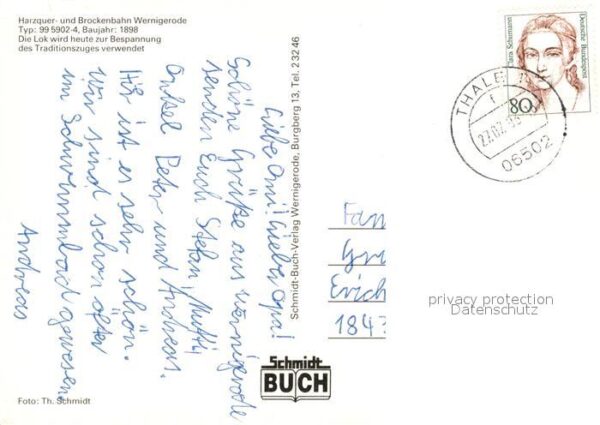 Harzquer- und Brockenbahn Wernigerode
Typ: 99 5902-4, Baujahr: 1898
Die Lok wird heute zur Bespannung
des Traditionszuges verwendet
Liebe Omi! Lieber Opa!
Schöne Grüße aus Wernigerode
senden Euch Stefan, Mutti,
Onkel Peter und Andreas.
Hier ist es sehr schön.
Wir sind schon öfter
im Schwimmbad gewesen.
Andreas
Foto: Th. Schmidt
Schmidt-Buch-Verlag Wernigerode, Burgberg 13, Tel. 2 32 46
Schmidt
BUCH
Clara Schumann
Deutsche Bundespost
80
THALE 1
06502
Fam
Gra
Erich
184
privacy protection
Datenschutz